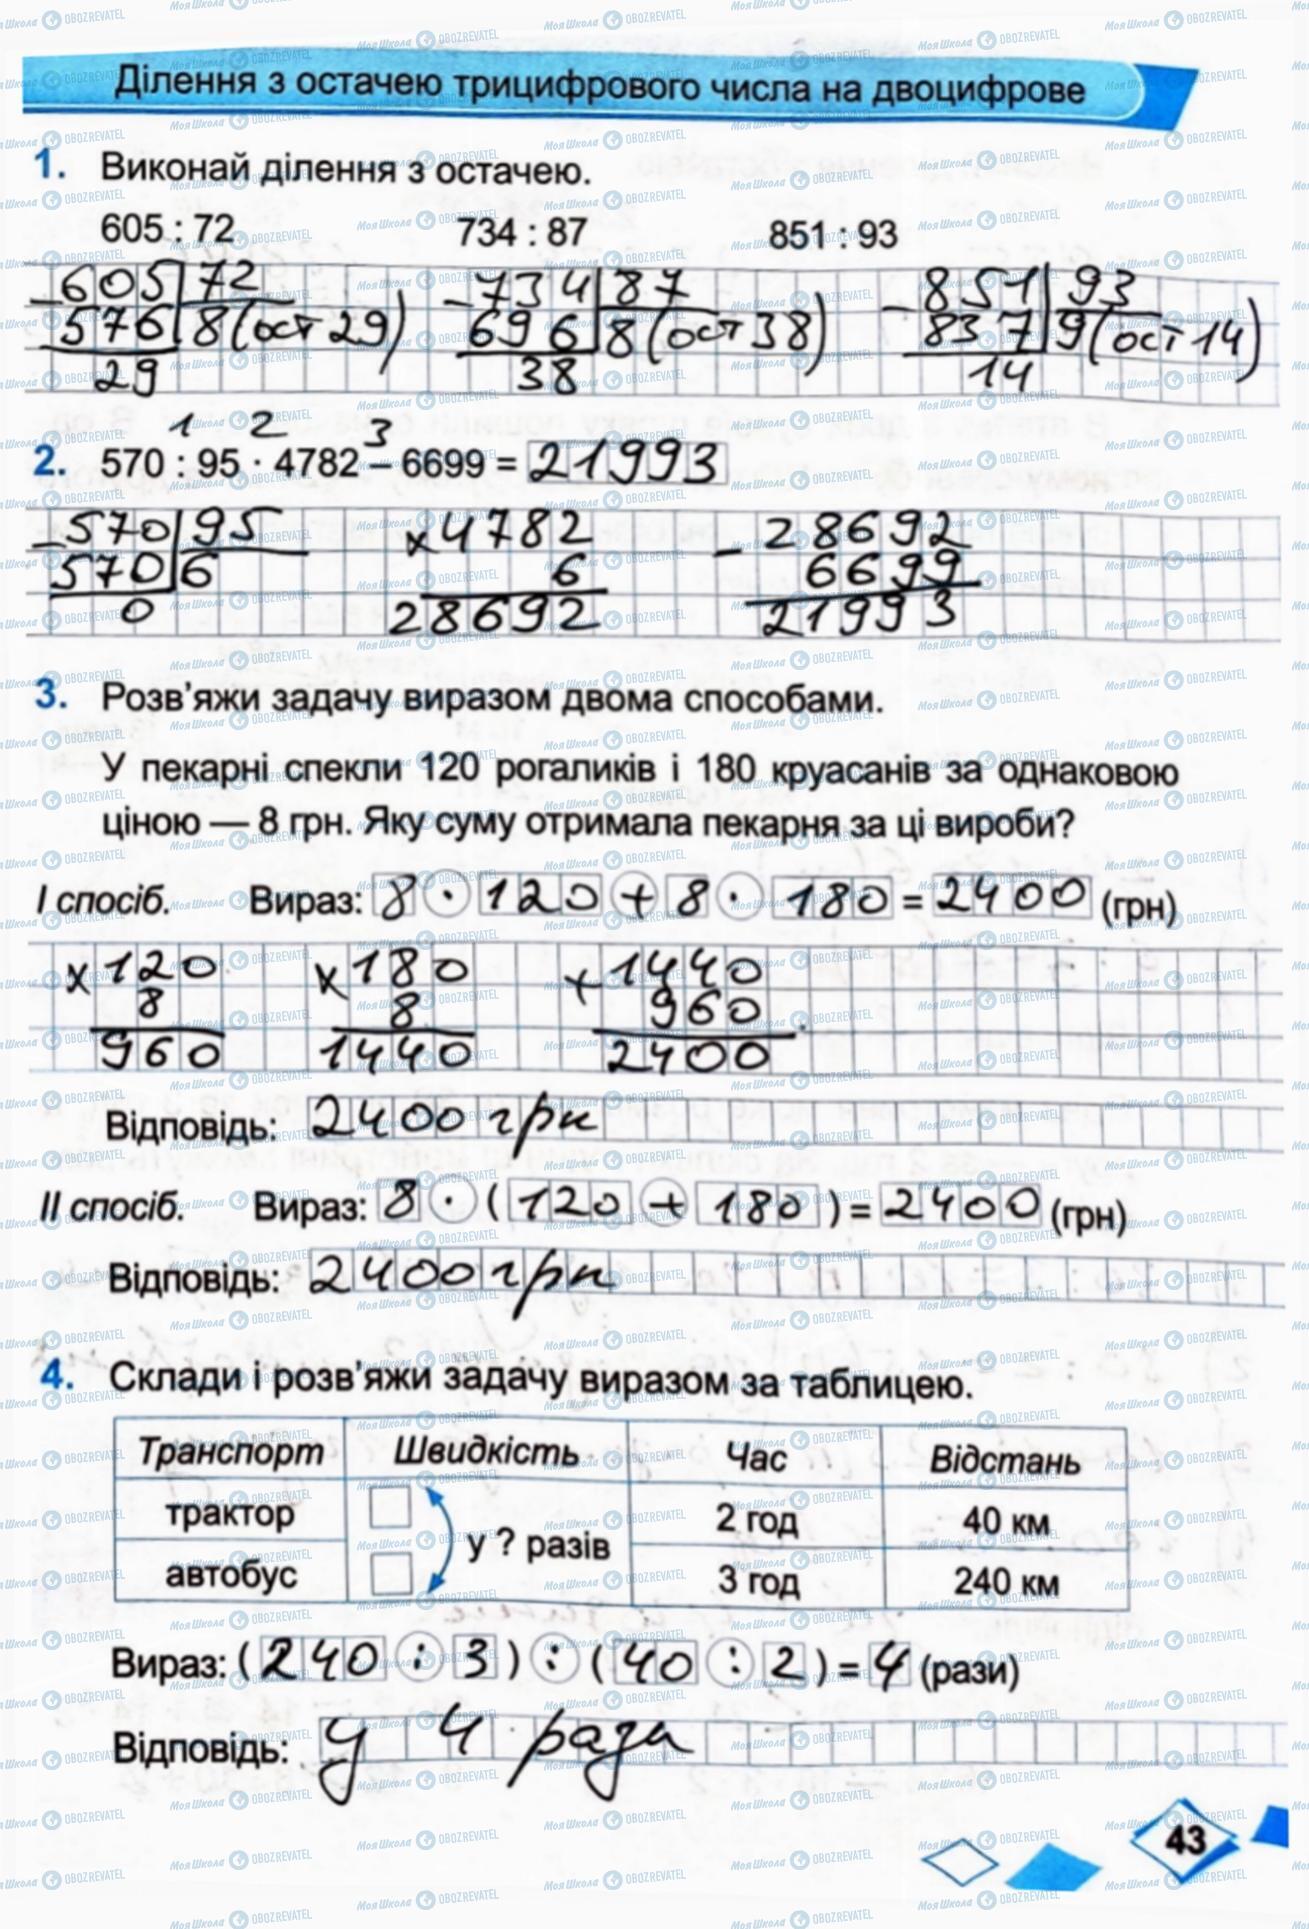 Ділення з остачею трицифрового числа на двоцифрове
1. Виконай ділення з остачею.
605 : 72 734 : 87 851 : 93
605 72 734 87 851 93
576 8 (ост 29) 696 8 (ост 38) 837 9 (ост 14)
29 38 14
1 2 3
2. 570 : 95 · 4782 – 6699 = 21993
570 95 × 4782 – 28692
570 6 6 6699
0 28692 21993
3. Розв’яжи задачу виразом двома способами.
У пекарні спекли 120 рогаликів і 180 круасанів за однаковою
ціною — 8 грн. Яку суму отримала пекарня за ці вироби?
І спосіб. Вираз: 8 · 120 + 8 · 180 = 2400 (грн)
× 120 × 180 + 1440
8 8 960
960 1440 2400
Відповідь: 2400 грн
ІІ спосіб. Вираз: 8 · (120 + 180) = 2400 (грн)
Відповідь: 2400 грн
4. Склади і розв’яжи задачу виразом за таблицею.
Транспорт Швидкість Час Відстань
трактор 2 год 40 км
у ? разів
автобус 3 год 240 км
Вираз: (240 : 3) : (40 : 2) = 4 (рази)
Відповідь: у 4 рази
43
МояШкола OBOZREVATEL